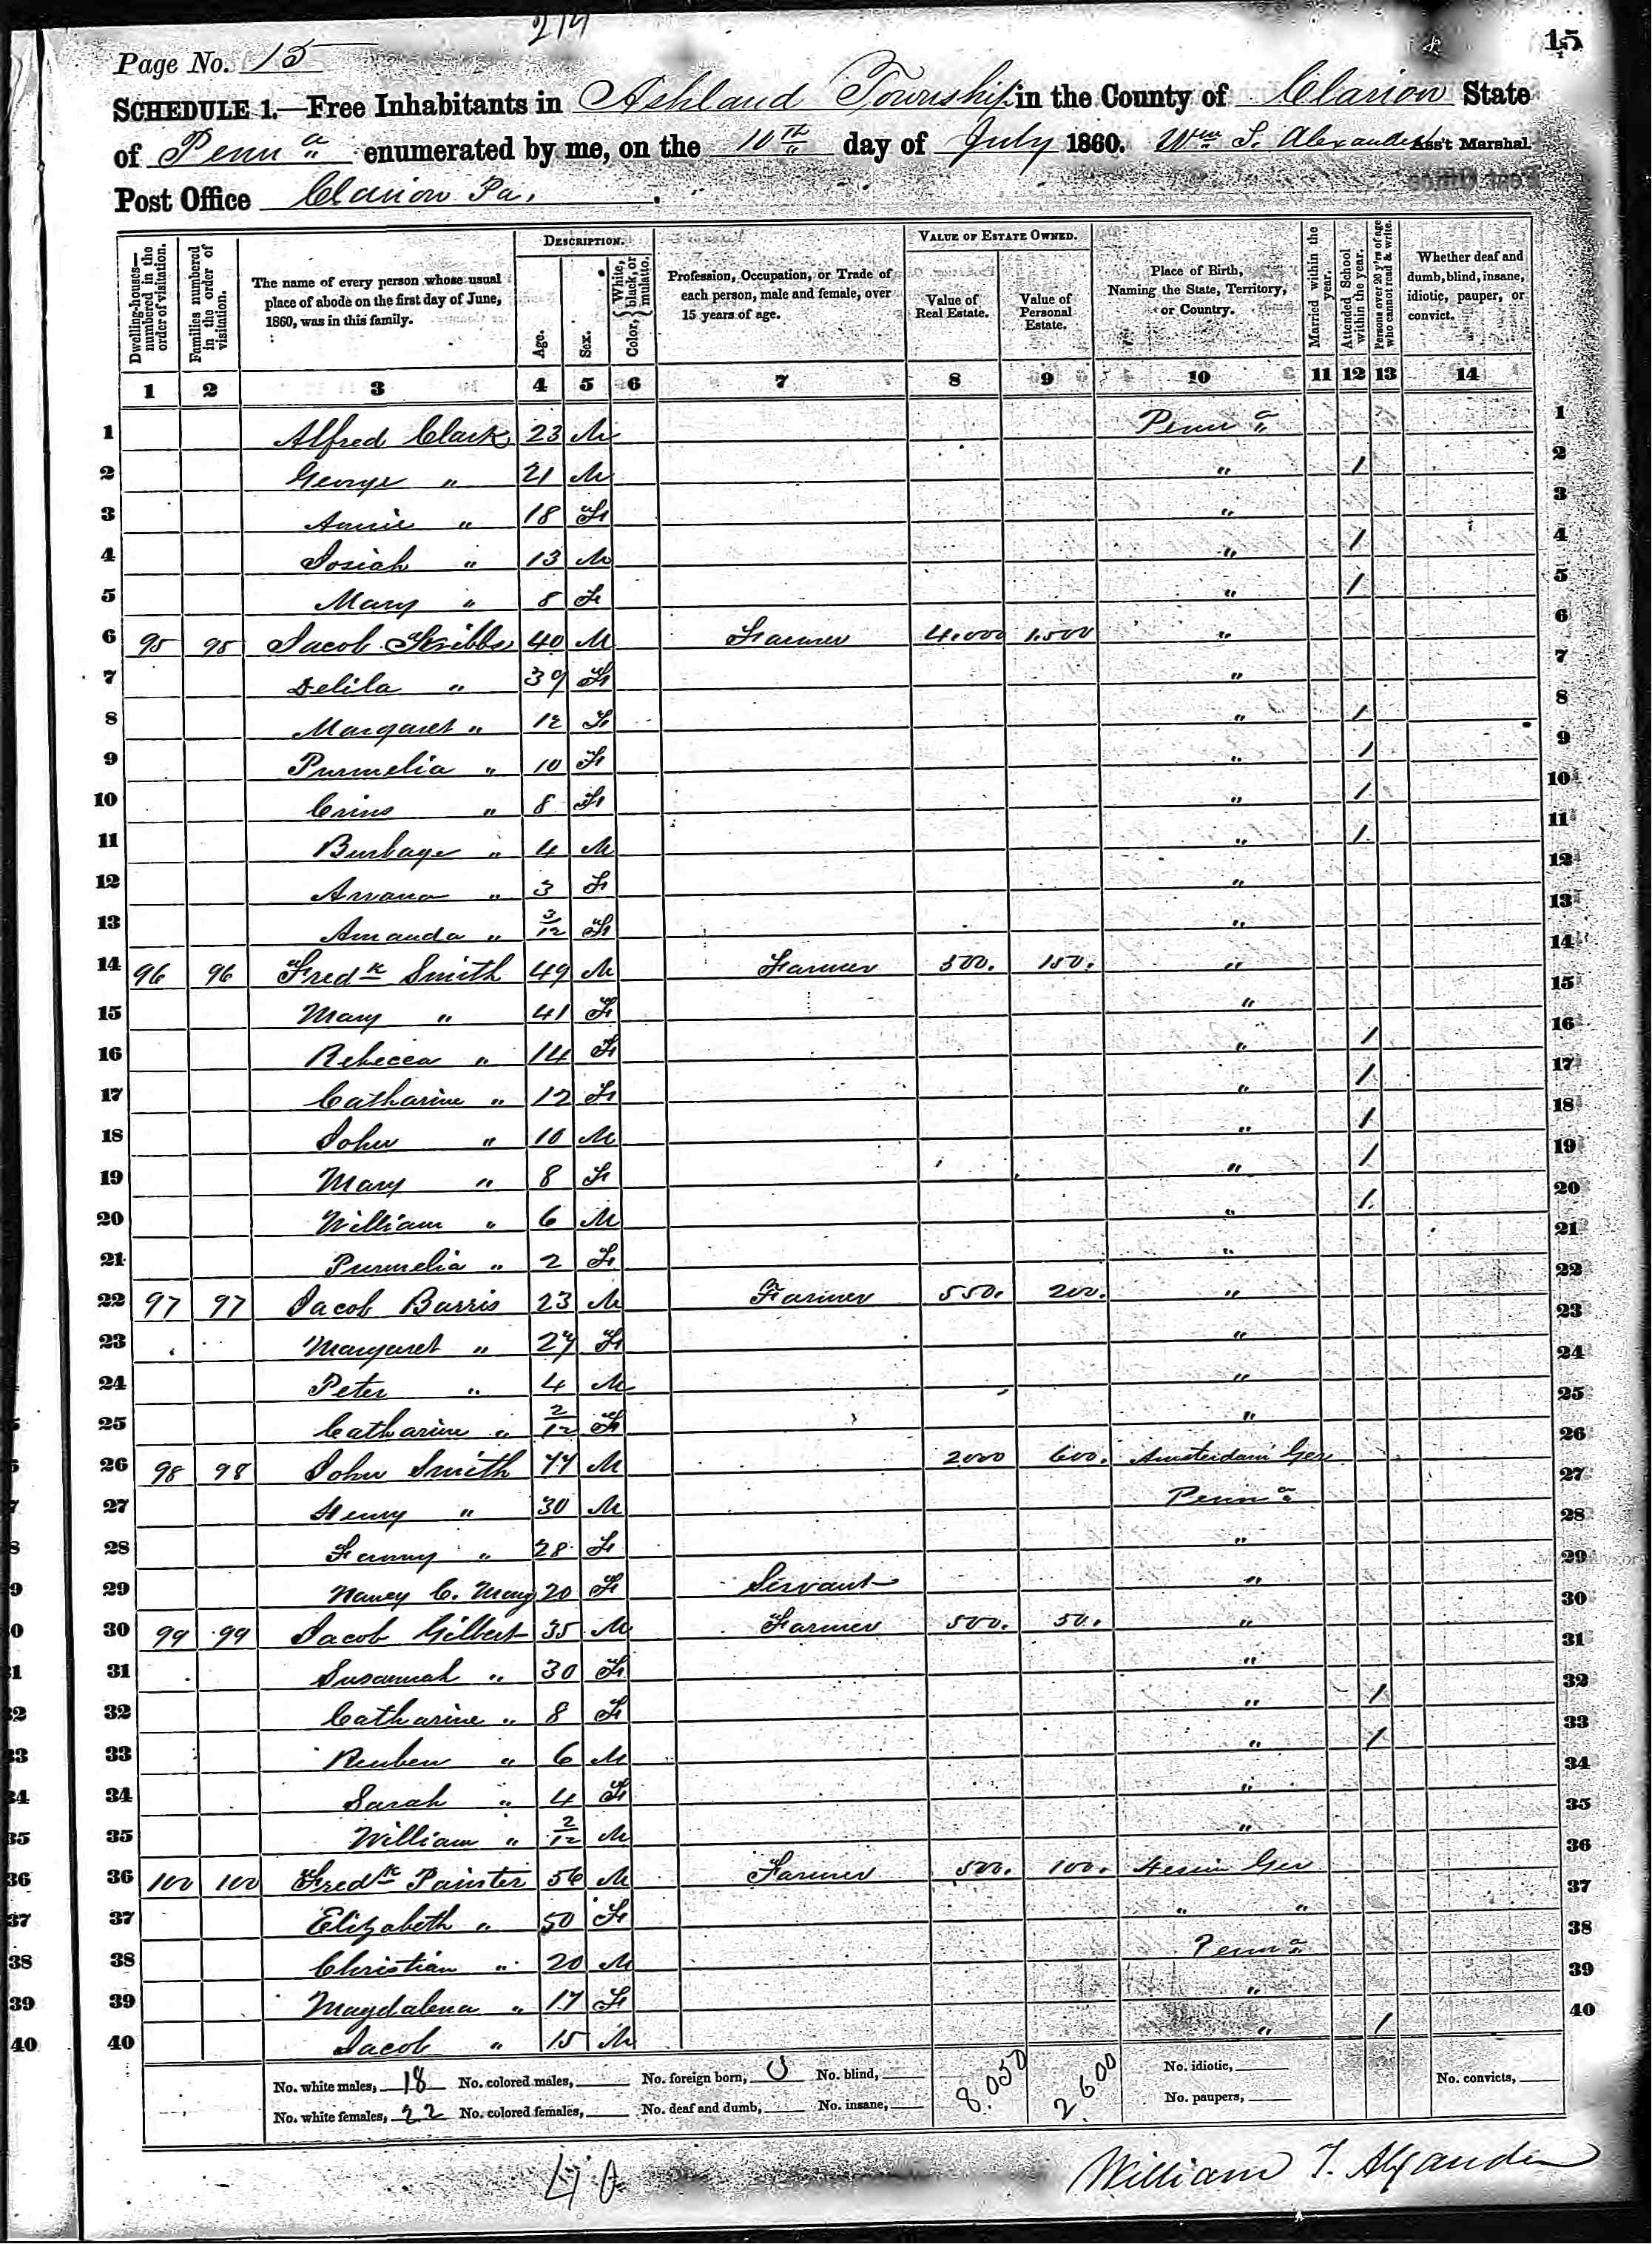 214
Page No. 15
15
SCHEDULE 1.—Free Inhabitants in Ashland Township in the County of Clarion State
of Penna enumerated by me, on the 10th day of July 1860. Wm T. Alexander Ass't Marshal.
Post Office Clarion Pa.
Dwelling-houses—numbered in the order of visitation.
Families numbered in the order of visitation.
The name of every person whose usual place of abode on the first day of June, 1860, was in this family.
DESCRIPTION.
Age.
Sex.
Color, { White, black, or mulatto.
Profession, Occupation, or Trade of each person, male and female, over 15 years of age.
VALUE OF ESTATE OWNED.
Value of Real Estate.
Value of Personal Estate.
Place of Birth, Naming the State, Territory, or Country.
Married within the year.
Attended School within the year.
Persons over 20 y'rs of age who cannot read & write.
Whether deaf and dumb, blind, insane, idiotic, pauper, or convict.
1 2 3 4 5 6 7 8 9 10 11 12 13 14
1 Alfred Clark 23 M Penna 1
2 George " 21 M " / 2
3 Annie " 18 F " 3
4 Josiah " 13 M " / 4
5 Mary " 8 F " / 5
6 95 95 Jacob Stribbs 40 M Farmer 4.000 1.500 " 6
7 Delila " 39 F " 7
8 Margaret " 12 F " / 8
9 Purmelia " 10 F " / 9
10 " 8 F " / 10
11 Burbage " 4 M " / 11
12 " 3 F " 12
13 Amanda " 3/12 F " 13
14 96 96 Fredk Smith 49 M Farmer 500. 150. " 14
15 Mary " 41 F " 15
16 Rebecca " 14 F " / 16
17 Catharine " 12 F " / 17
18 John " 10 M " / 18
19 Mary " 8 F " / 19
20 William " 6 M " / 20
21 Purmelia " 2 F " 21
22 97 97 Jacob Barris 23 M Farmer 550. 200. " 22
23 Margaret " 27 F " 23
24 Peter " 4 M " 24
25 Catharine " 2/12 F " 25
26 98 98 John Smith 77 M 2000 600. Amsterdam Ger 26
27 Henry " 30 M Penna 27
28 Fanny " 28 F " 28
29 Nancy C. May 20 F Servant " 29
30 99 99 Jacob Gilbert 35 M Farmer 500. 50. " 30
31 Susannah " 30 F " 31
32 Catharine " 8 F " / 32
33 Reuben " 6 M " / 33
34 Sarah " 4 F " 34
35 William " 2/12 M " 35
36 100 100 Fredk Painter 56 M Farmer 500. 100. Hessin Ger 36
37 Elizabeth " 50 F " " 37
38 Christian " 20 M Penna 38
39 Magdalena " 17 F " 39
40 Jacob " 15 M " / 40
No. white males, 18 No. colored males, No. foreign born, No. blind, 8.050 2.600 No. idiotic, No. convicts,
No. white females, 22 No. colored females, No. deaf and dumb, No. insane, No. paupers,
40
William T. Alexander